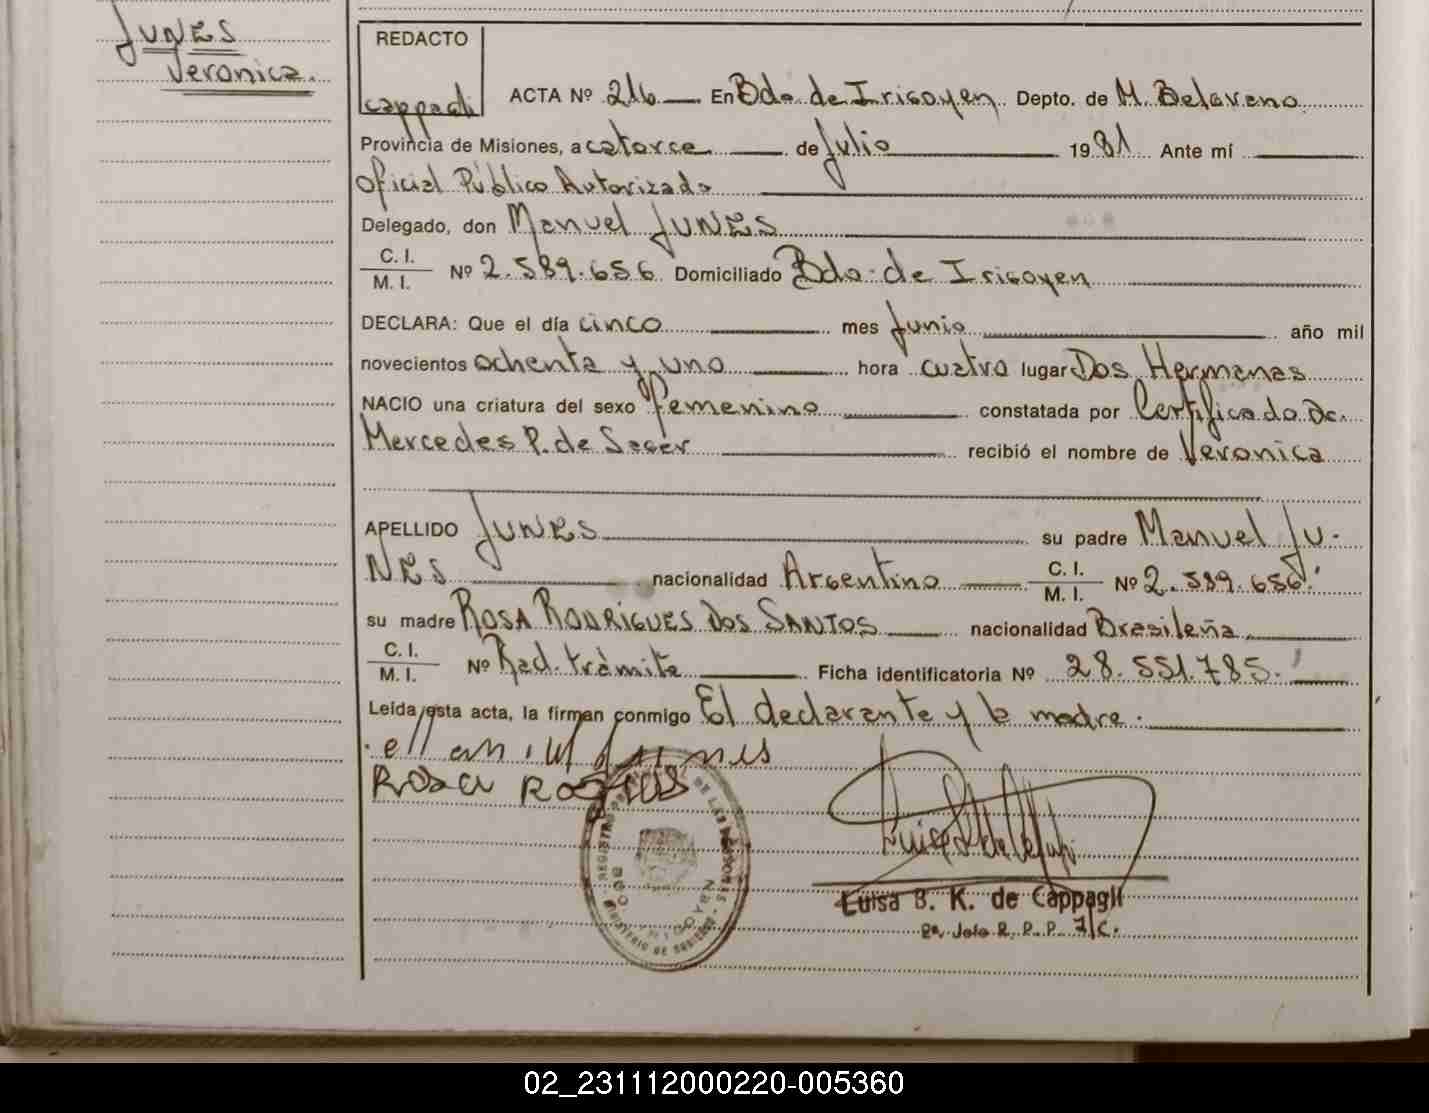 JUNES
Veronica.
REDACTO
cappagli
ACTA Nº 216 En Bdo. de Irigoyen Depto. de M. Belgrano
Provincia de Misiones, a catorce de Julio 1981 Ante mí
Oficial Público Autorizado
Delegado, don Manuel JUNES
C. I.
M. I. Nº 2.589.656 Domiciliado Bdo. de Irigoyen
DECLARA: Que el día cinco mes Junio año mil
novecientos ochenta y uno hora cuatro lugar Dos Hermanas
NACIO una criatura del sexo femenino constatada por Certificado De.
Mercedes P. de Seger recibió el nombre de Veronica
APELLIDO JUNES su padre Manuel JU-
NES nacionalidad Argentino C. I. M. I. Nº 2.589.656.
su madre ROSA RODRIGUES DOS SANTOS nacionalidad Brasileña
C. I.
M. I. Nº Rad. trámite Ficha identificatoria Nº 28.551.785.
Leída esta acta, la firman conmigo El declarante y la madre.
Rosa
REGISTRO DE LAS PERSONAS
MINISTERIO DE GOBIERNO
Luisa B. K. de Cappagli
02_231112000220-005360